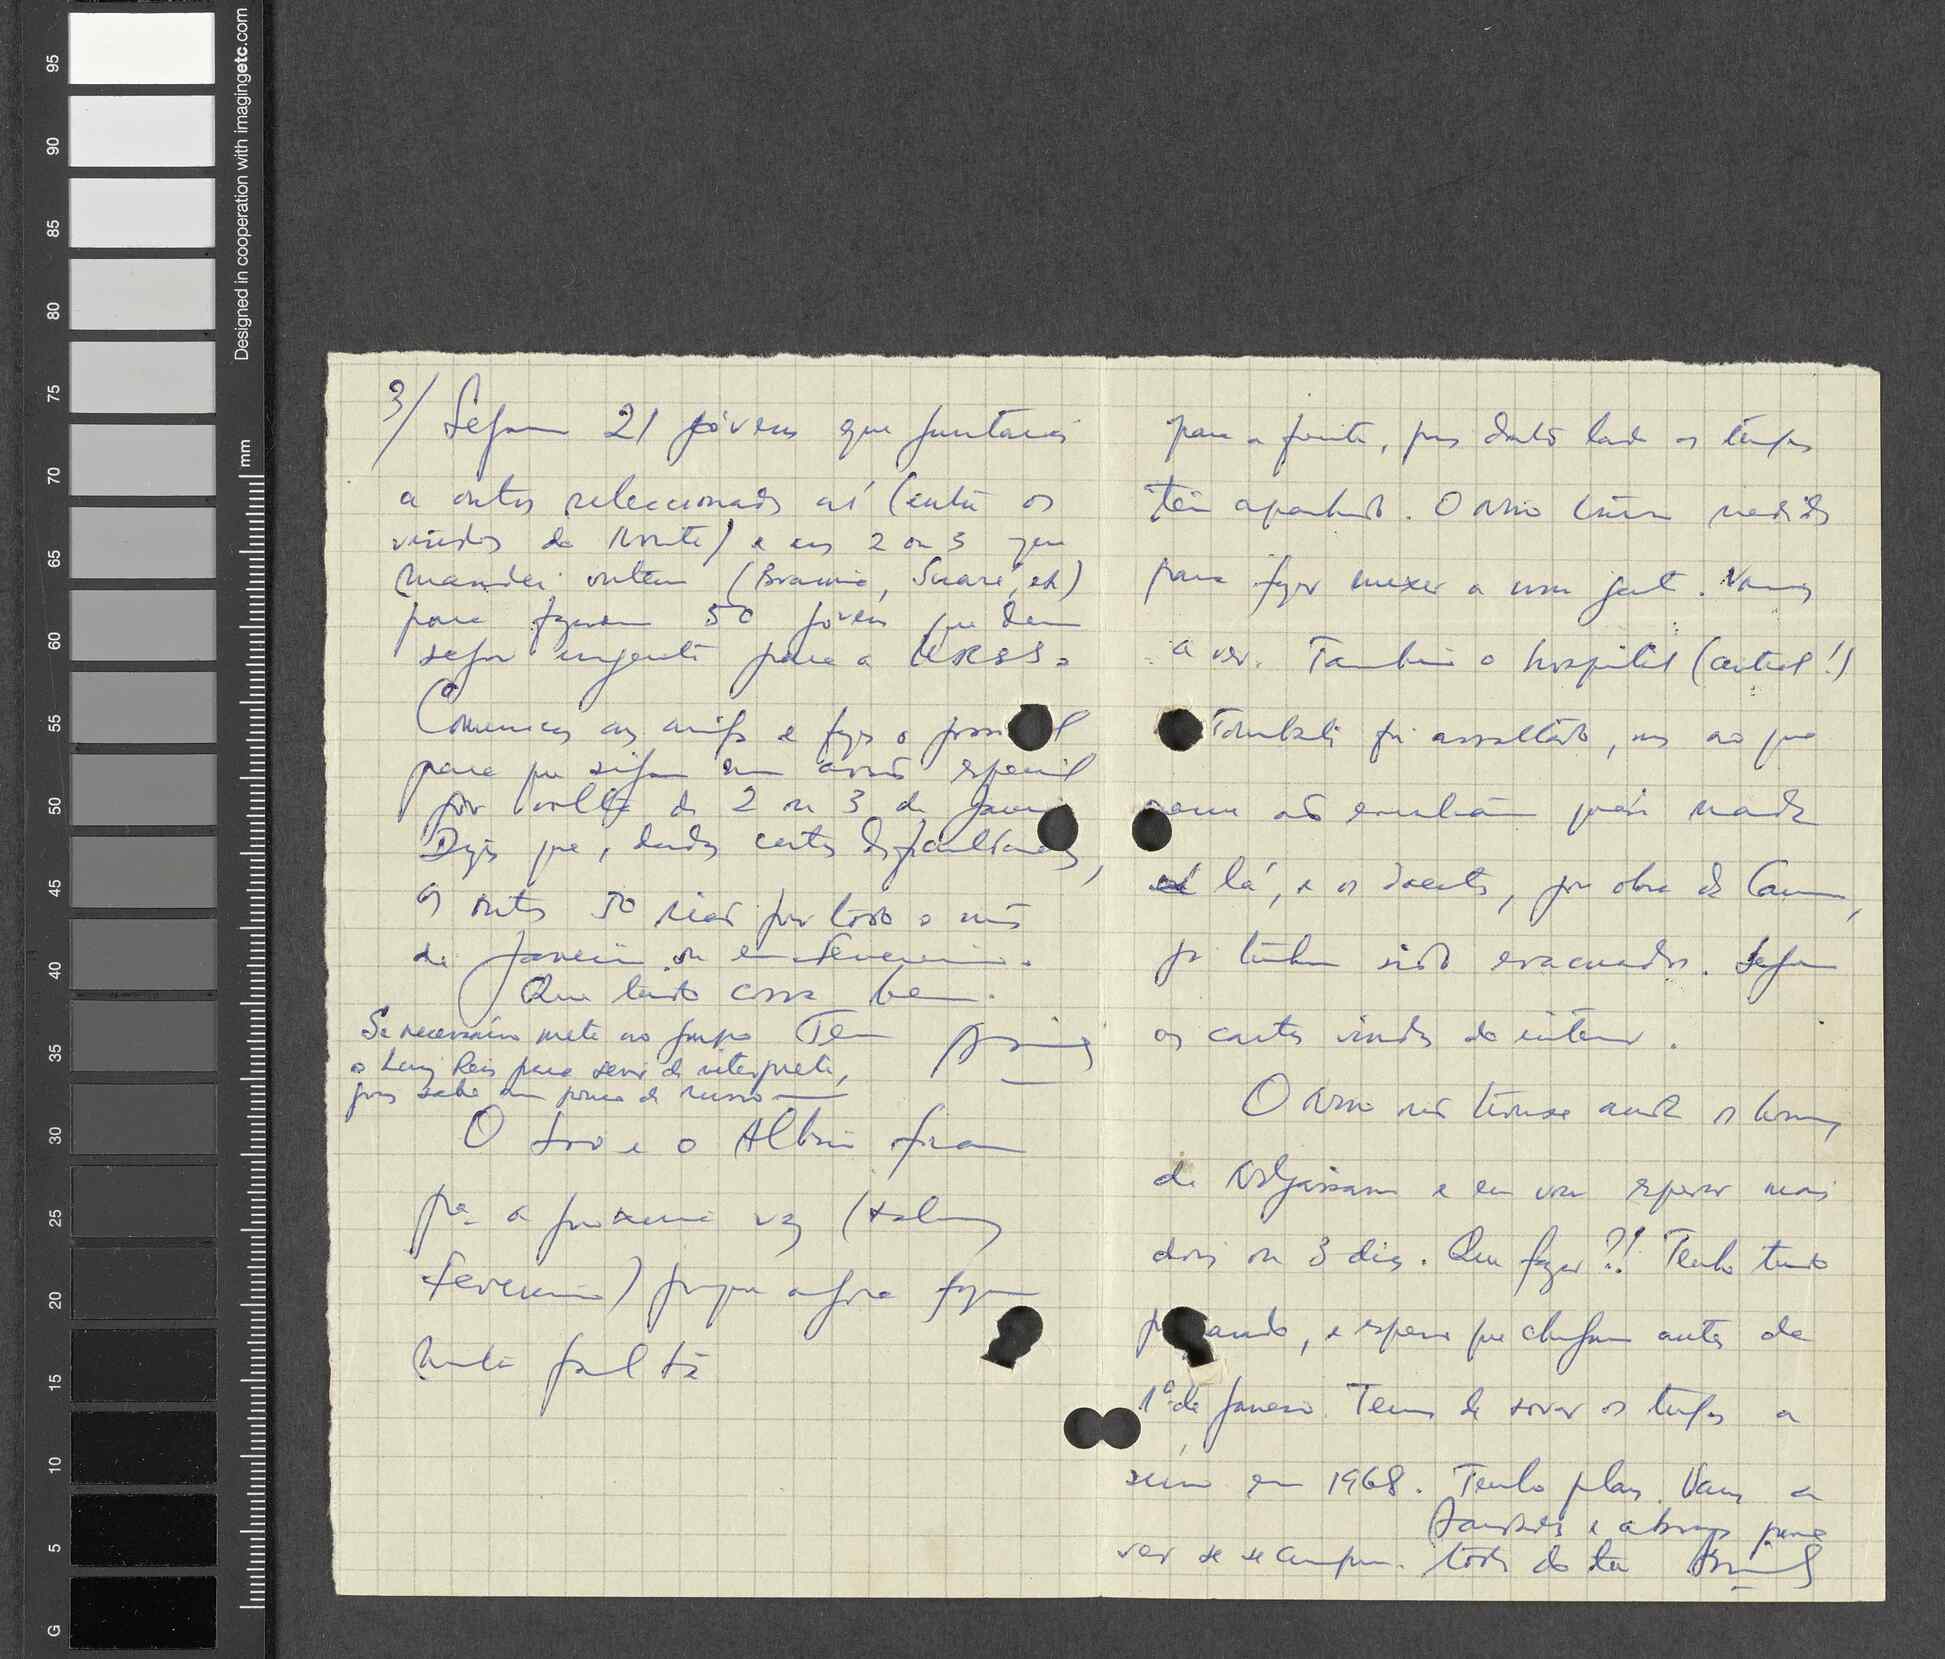 3/ Seguem 21 jóvens que juntarás
a outros seleccionados aí (entre os
vindos do Norte) e aos 2 ou 3 que
mandei ontem (Braima, Suaré, etc)
para fazerem 50 jovens que devem
seguir urgente para a URSS.
Comunica aos amigos e faz o possível
para que sigam em avião especial
por volta de 2 ou 3 de Janeiro
Diz que, dadas certas dificuldades,
os outros 50 irão por todo o mês
de Janeiro ou em Fevereiro.
Que tudo corra bem.
Se necessário mete no grupo
o Luiz Reis para servir de intérprete,
pois sabe um pouco de russo
Teu
O e o Albino ficam
para a próxima vez (
Fevereiro) porque agora fazem
muita falta
para a frente, pois doutro lado os tugas
têm apanhado. O Nino tomou medidas
para fazer mexer a nossa gente. Vamos
a ver. Também o hospital (central!)
Tombali foi assaltado, mas ao que
parece não encontraram quási nada
lá, e os doentes, por obra de
já tinham sido evacuados. Seguem
as cartas vindas do interior.
O Nino não trouxe ainda os homens
de e eu vou esperar mais
dois ou 3 dias. Que fazer?! Tenho tudo
parado, e espero que cheguem antes de
1º de Janeiro. Temos de sovar os tugas a
sério em 1968. Tenho planos. Vamos a
ver se se cumprem.
Saudades e abraços para
todos do teu
Designed in cooperation with imagingetc.com
mm
95
90
85
80
75
70
65
60
55
50
45
40
35
30
25
20
15
10
5
G